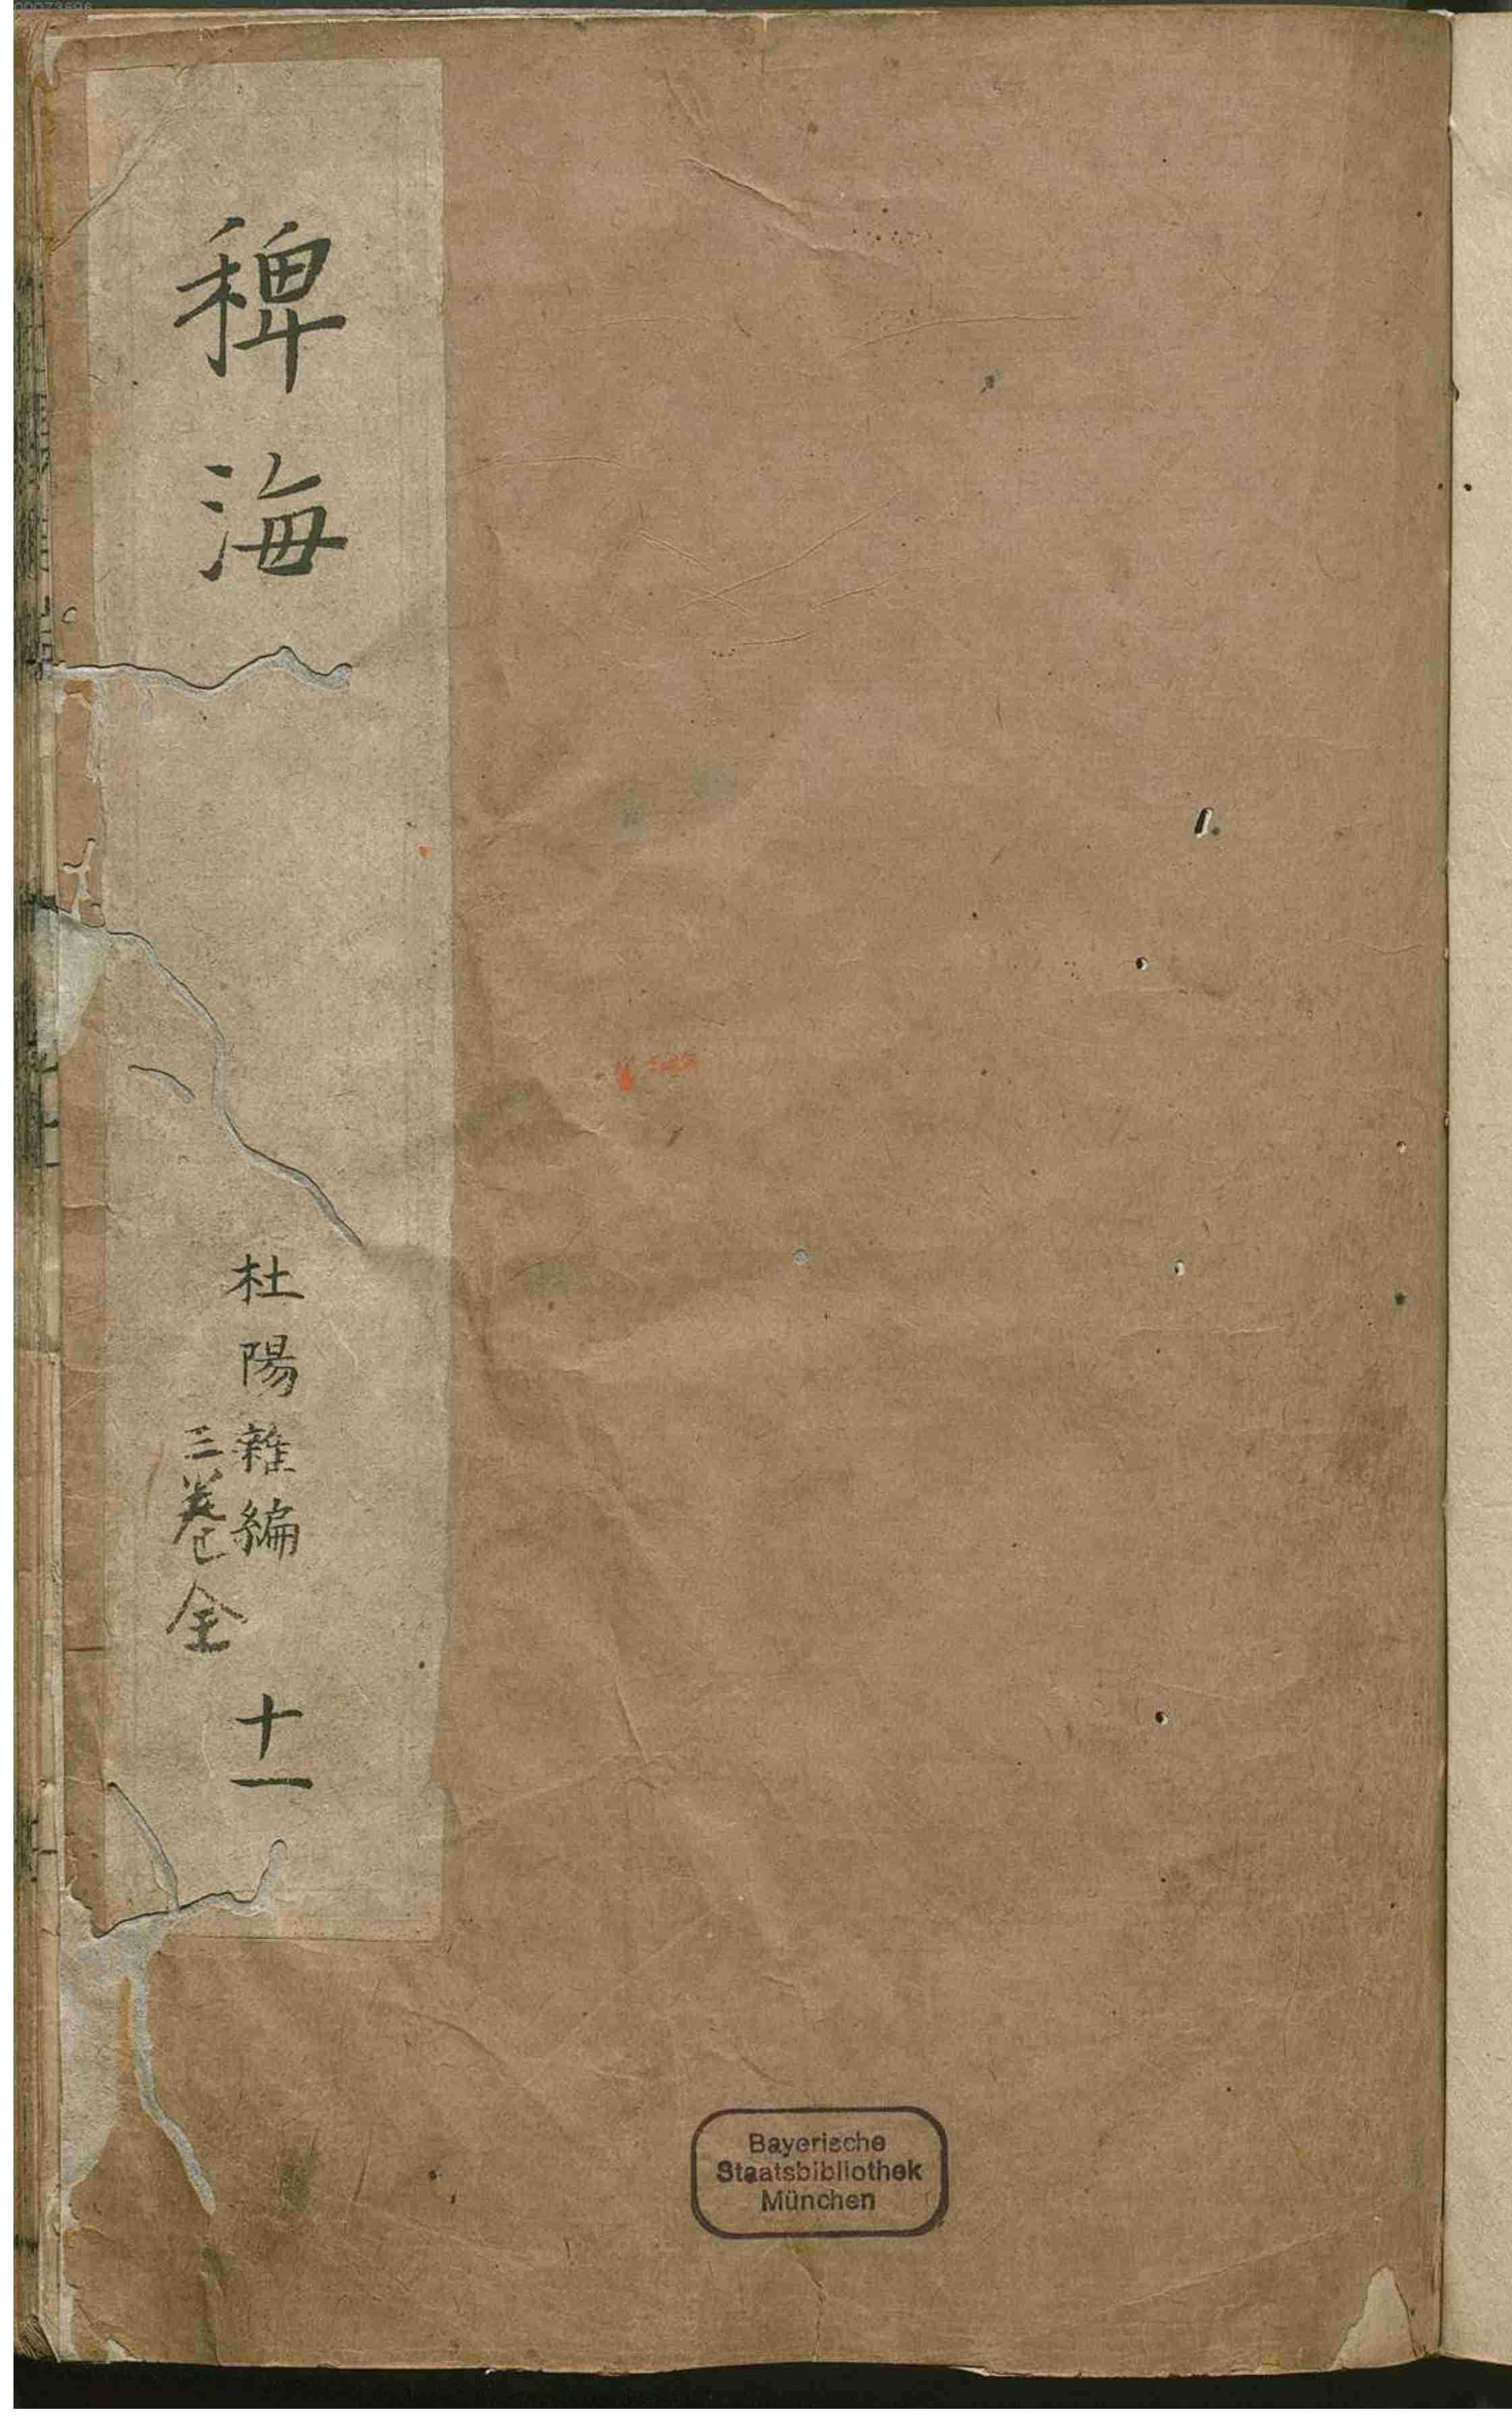 稗海
杜陽雜編
三卷全
十一
Bayerische
Staatsbibliothek
München